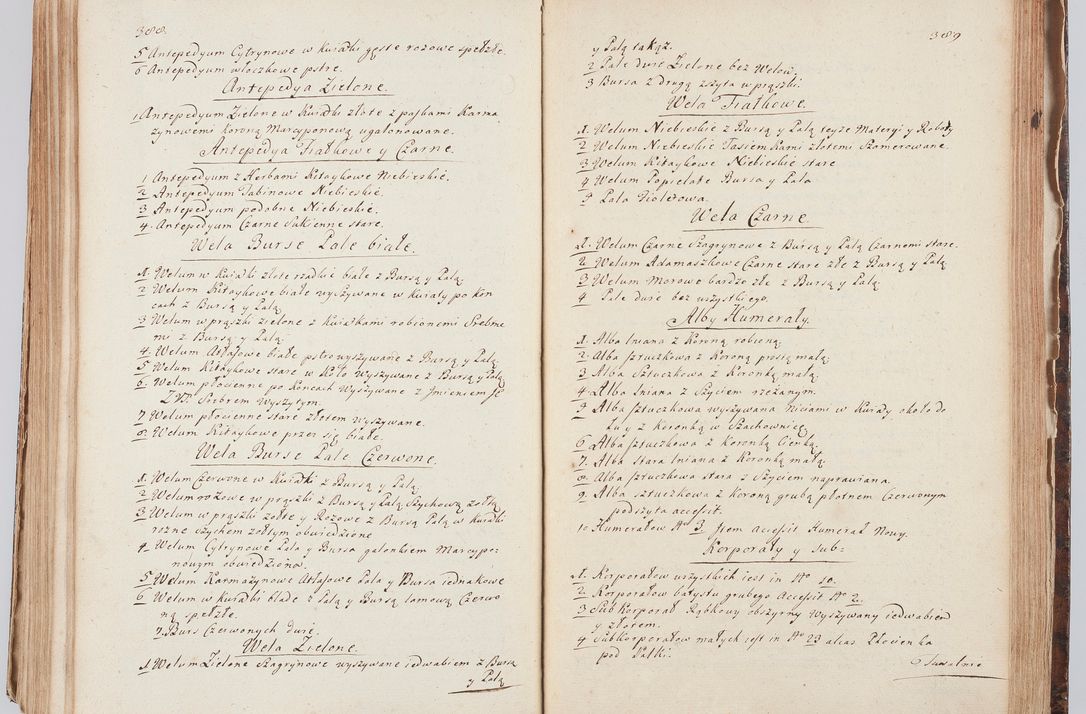 388.
5 Antepedyum Cytrynowe w kwiatki gęste rożowe spełzłe.
6 Antepedyum włoczkowe pstre.
Antepedya Zielone.
1 Antepedyum Zielone w kwiatki złote z paskami karma
zynowemi koroną Marcyponową ugalonowane.
Antepedya Fiałkowe y Czarne.
1 Antepedyum z Herbami kitaykowe Niebieskie.
2 Antepedyum Tabinowe Niebieskie.
3 Antepedyum podobne Niebieskie.
4. Antepedyum Czarne Sukienne stare.
Wela Burse Pale białe.
1. Welum w kwiatki złote rzadkie białe z Bursą y Palą.
2 Welum kitaykowe białe wyszywane w kwiaty po kon
cach z Bursą y Palą.
3 Welum w prążki zielone z kwiatkami robionemi Srebrne
mi z Bursą y Palą.
4. Welum Atłasowe białe pstro wyszywane z Bursą y Palą.
5 Welum kitaykowe stare w koło wyszywane z Bursą y Palą
6. Welum płocienne po koncach wyszywane z Jmieniem
Srebrem wyszytym.
7 Welum płocienne stare złotem wyszywane.
8 Welum kitaykowe przez się białe.
Wela Burse Pale Czerwone.
1. Welum Czerwone w kwiatki z Bursą y Palą.
2 Welum rożowe w prążki z Bursą y Palą Szychową żołtą
3 Welum w prążki żołte y Rożowe z Bursą Palą w kwiatki
rozne szychem żołtym obwiedzione
4. Welum Cytrynowe Pala y Bursa galonkiem Marcypo-
nowym obwiedziona.
5 Welum karmazynowe Atłasowe Pala y Bursa iednakowe
6 Welum w kwiatki blade z Palą y Bursą lamową Czerwo
ną spełzłe.
7. Burs Czerwonych dwie.
Wela Zielone.
1. Welum Zielone Szagrynowe wyszywane iedwabiem z Bursą
y Palą

389
y Palą takąż.
2 Pale dwie Zielone bez Welow.
3 Bursa z drugą zszyta w prążki.
Wela Fiałkowe.
1. Welum Niebieskie z Bursą y Palą teyże Materyi y Roboty
2 Welum Niebieskie Tasiemkami złotemi Szamerowane.
3 Welum kitaykowe Niebieskie stare
4 Welum Popielate Bursa y Pala
5 Pala Fioletowa.
Wela Czarne.
1. Welum Czarne Szagrynowe z Bursą y Palą Czarnemi stare.
2. Welum Adamaszkowe Czarne stare złe z Bursą y Palą
3 Welum Morowe bardzo złe z Bursą y Palą.
4 Pale dwie bez wszystkiego.
Alby Humerały.
1. Alba lniana z koroną robioną.
2. Alba sztuczkowa z koroną prostą małą.
3 Alba Sztuczkowa z koronką małą.
4. Alba lniana z Szyciem rzeżanym.
5 Alba sztuczkowa wyszywana niciami w kwiaty około do
łu y z koronką w Szachownicę.
6 Alba sztuczkowa z koronką Cienką.
7. Alba stara lniana z koronką małą.
8. Alba sztuczkowa stara z Szyciem naprawiana.
9. Alba sztuczkowa z koroną grubą płotnem Czerwonym
podszyta accessit.
10. Humerałow No 3 Item accessit Humerał Nowy.
Korporały y sub=
1. Korporałow wszystkich iest in No 10.
2. Korporałow batystu grubego Accessit No 2.
3 Subkorporał Rąbkowy obszyrny wyszywany iedwabiem
y złotem.
4 Subkorporałow małych iest in No 23 alias Płocienka
pod Palki.